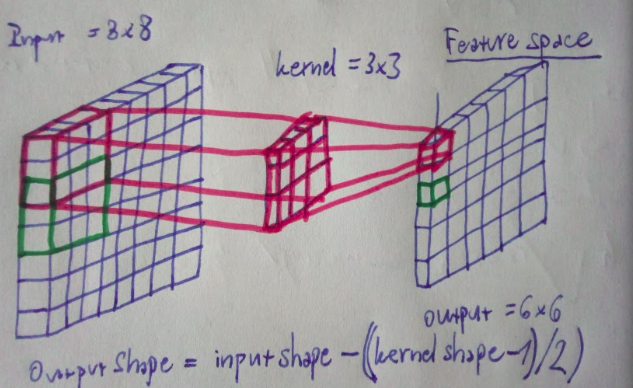 Input = 8x8
kernel = 3x3
Feature space
output = 6x6
Output Shape = input shape - ((kernel shape-1)/2)